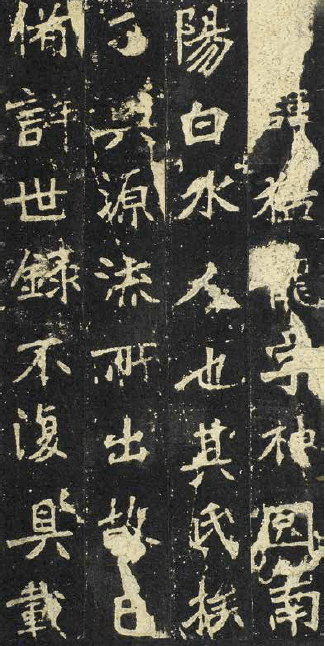 諱猛龍字神囧南
陽白水人也其氏族
源流所出故
備詳世錄不復具載